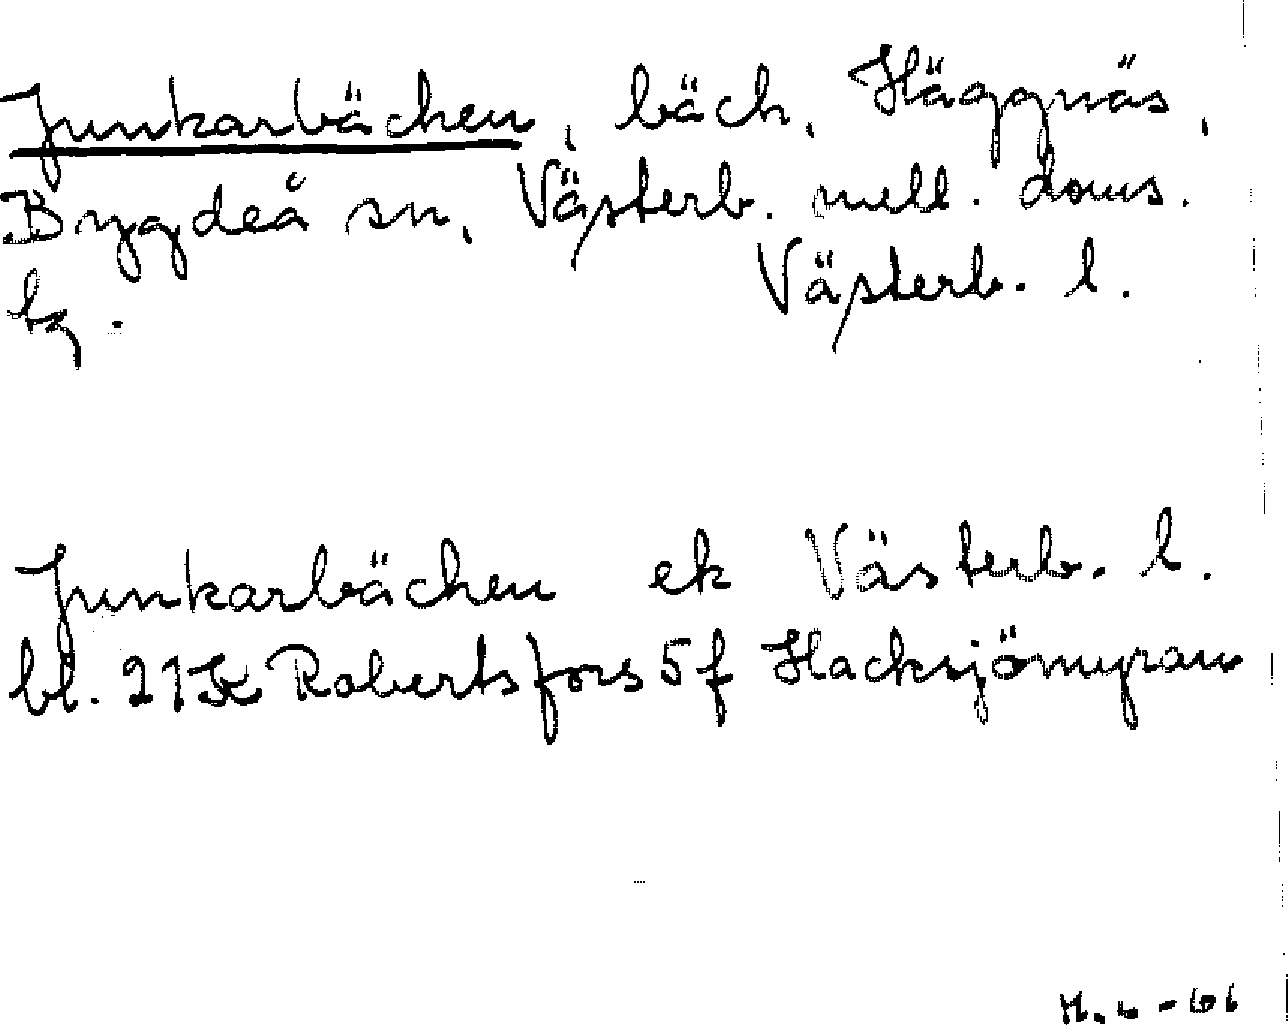 Junkarbäcken, bäck, Häggnäs,
Bygdeå sn, Västerb. mell. doms.
tg. Västerb. l.
Junkarbäcken ek Västerb. l.
bl. 21K Robertsfors 5f Hacksjömyran